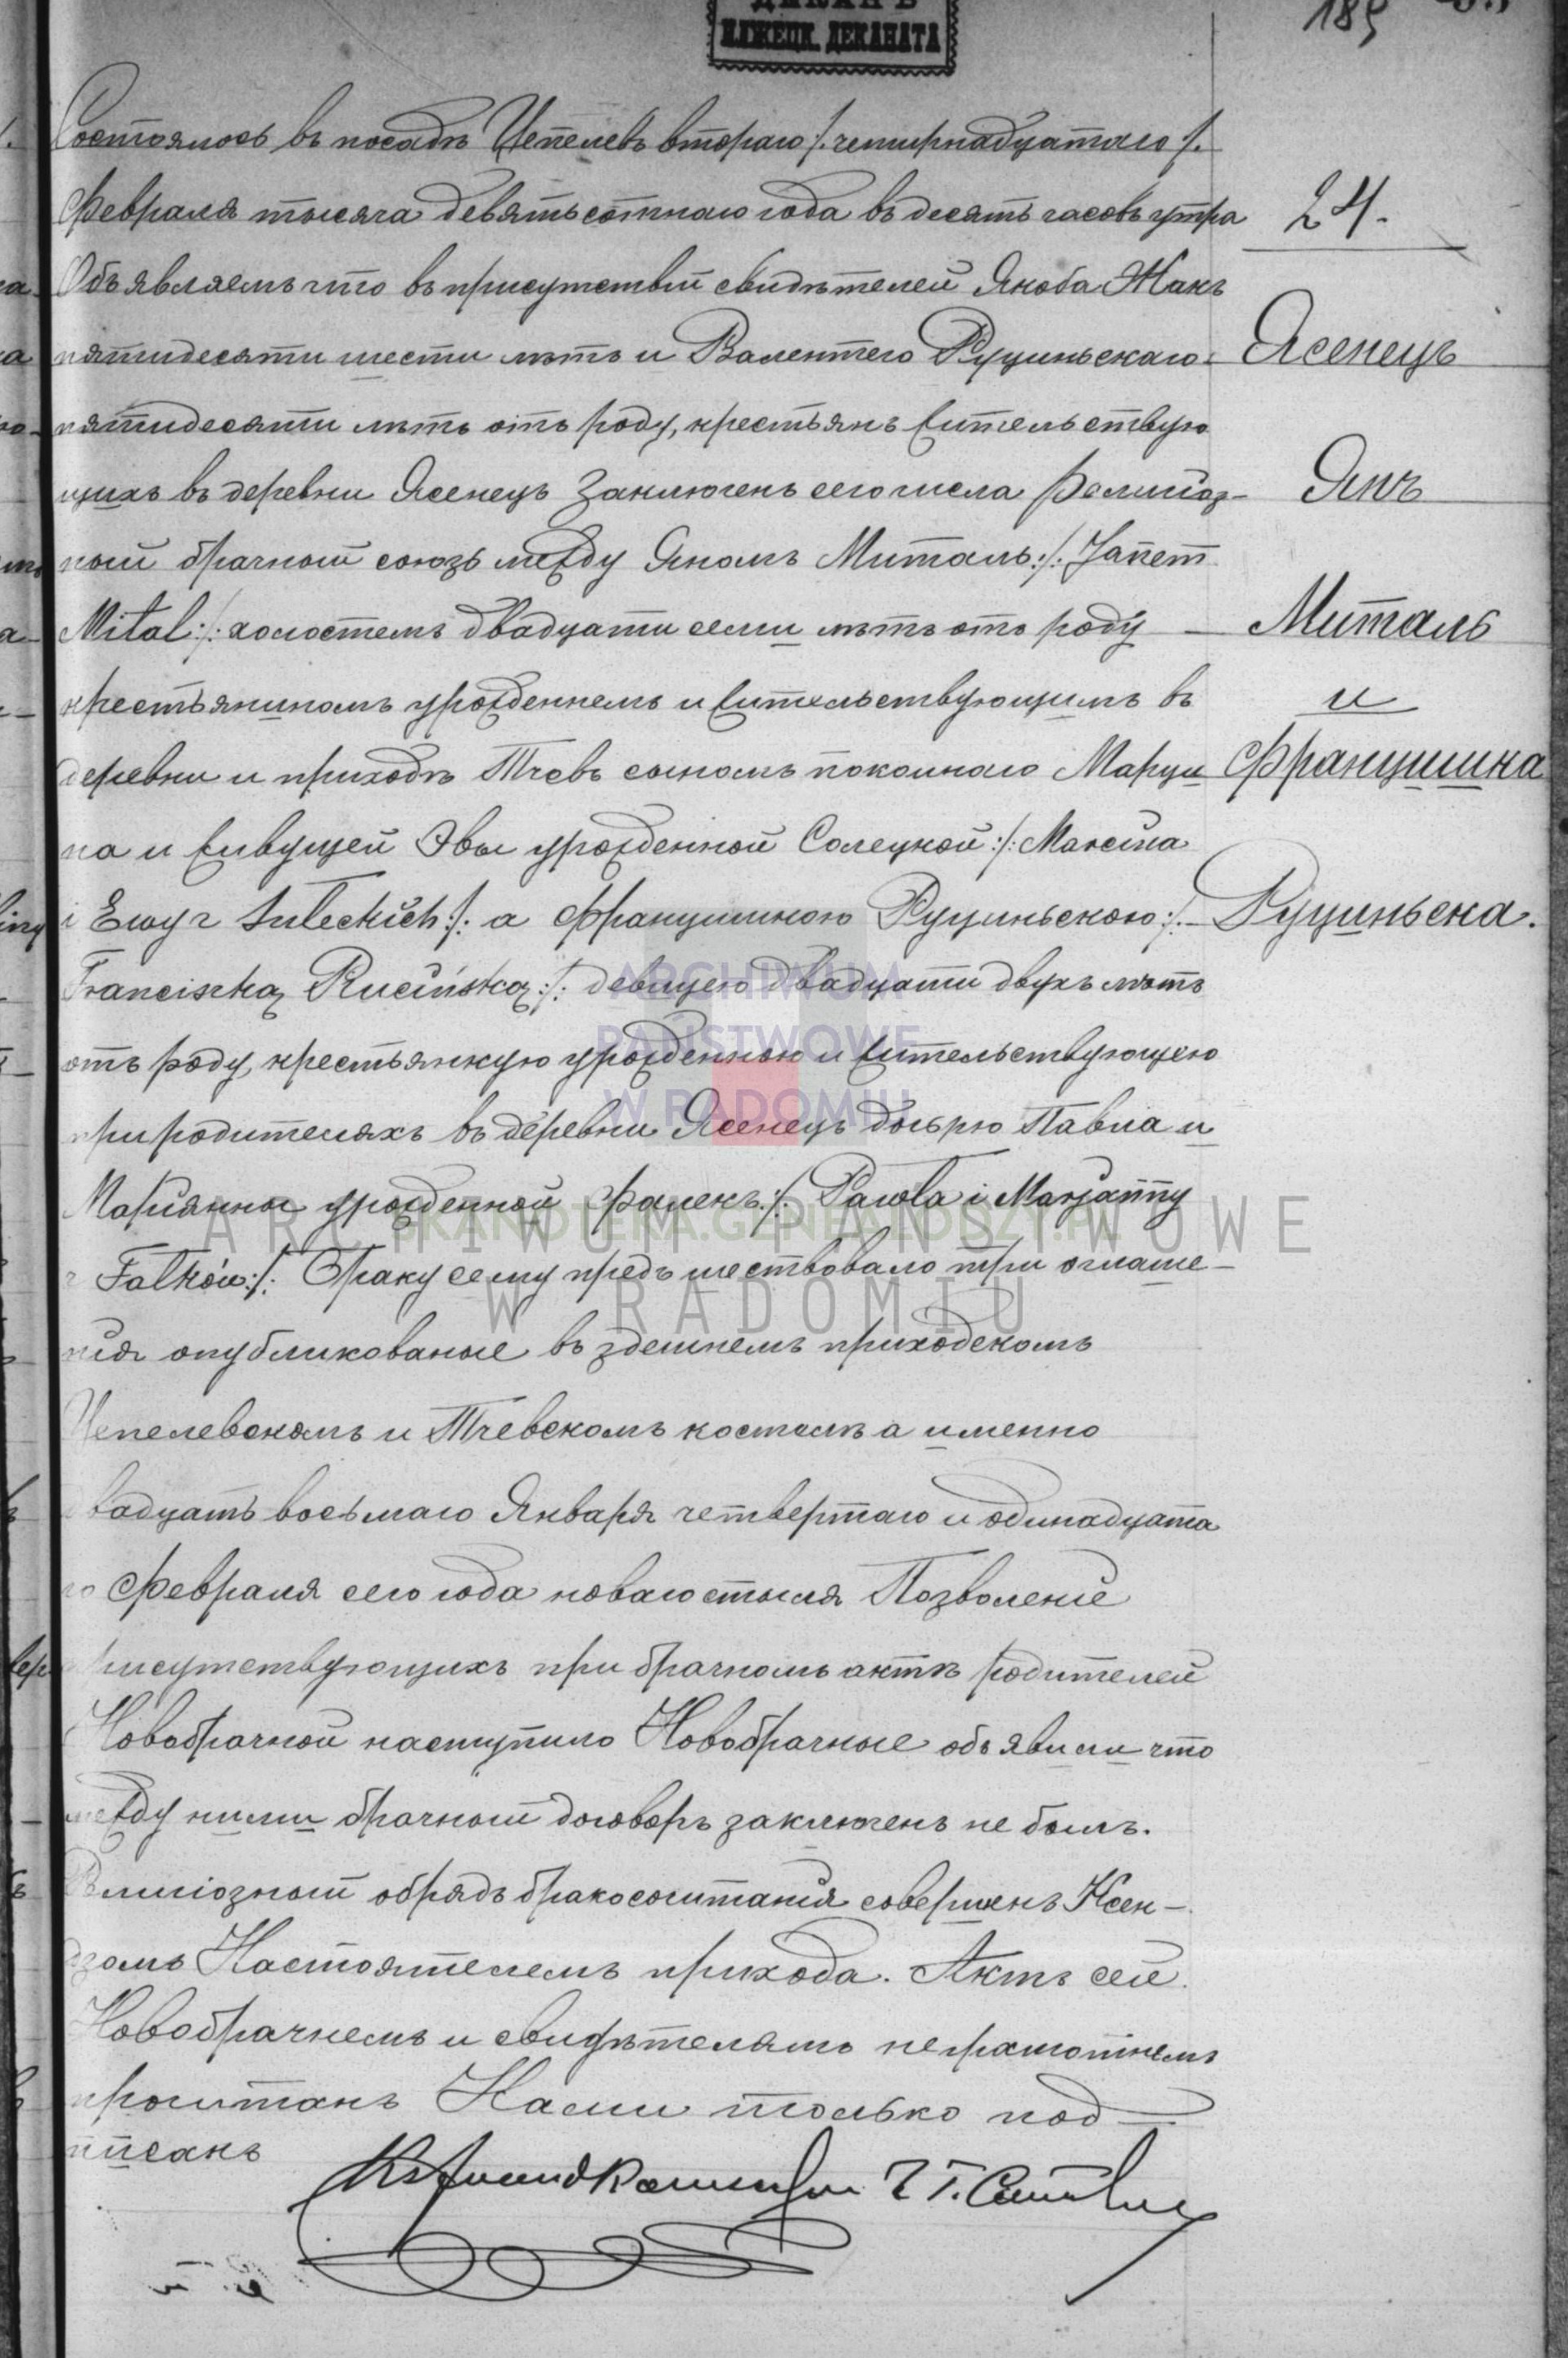 ДЕКАНЪ
ИЛЖЕЦК. ДЕКАНАТА
189
Состоялось въ посадѣ Цепелевъ втораго /. четырнадцатаго /.
Февраля тысяча девятьсотнаго года въ десять часовъ утра
24.
Объявляемъ что въ присутствіи свидѣтелей Якоба Жакъ
пятидесяти шести лѣтъ и Валентего Руциньскаго
Ясенецъ
пятидесяти лѣтъ отъ роду, крестьянъ жительствую
щихъ въ деревни Ясенецъ заключенъ сего числа религіоз-
Янъ
ный брачный союзъ между Яномъ Миталь :/: Janem
Mital :/: холостемъ двадцати семи лѣтъ отъ роду
Миталь
крестьяниномъ урожденнемъ и жительствующимъ въ
и
деревни и приходѣ Тчовъ сыномъ покоинаго Марци
Францишка
на и живущей Эвы урожденной Солецкой :/: Marcina
i Ewy z Soleckich :/: а Францишкою Руциньскою :/:
Руциньска.
Franciszką Rucińską :/: девицею двадцати двухъ лѣтъ
отъ роду, крестьянкую урожденною и жительствующею
при родителяхъ въ деревни Ясенецъ дочерю Павла и
Маріянны урожденной Фалекъ :/: Pawła i Marjanny
z Falków :/: Браку сему предшествовало три оглаше-
нія опубликованые въ здешнемъ приходскомъ
Цепелевскомъ и Тчевскомъ костелѣ а именно
двадцать восьмаго Января четвертаго и одинадцата
го Февраля сего года новаго стыля Позволеніе
присутствующихъ при брачномъ актѣ родителей
Новобрачной наступило Новобрачные объявили что
между ними брачный договоръ заключенъ не былъ.
Религіозный обрядъ бракосочитанія совершенъ Ксен-
дзомъ Настоятелемъ прихода. Актъ сей
Новобрачнемъ и свидѣтелямъ неграмотнемъ
прочитанъ Нами только под-
писанъ
ARCHIWUM
PAŃSTWOWE
W RADOMIU
ARCHIWUM PAŃSTWOWE
SKANOTEKA.GENEALODZY.PL
W RADOMIU